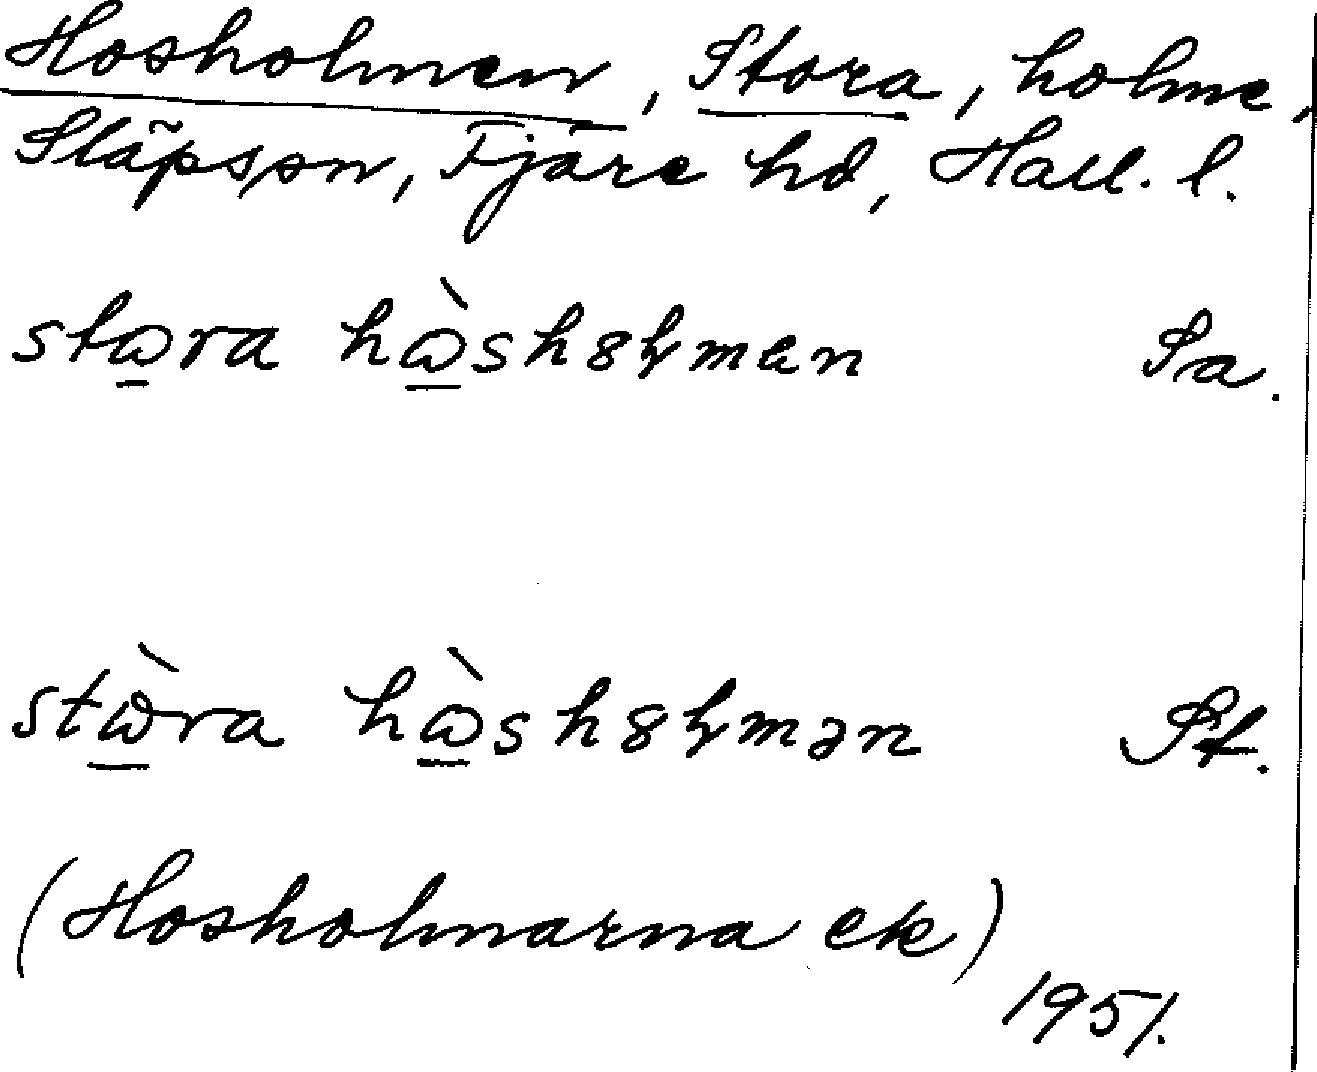 Hosholmen, Stora, holme,
Släps sn, Fjäre hd, Hall. l.
stɷ̲ra hɷ̲̀sh8ɫmen Sa.
stɷ̲̀ra hɷ̲̀sh8ɫmən St.
(Hosholmarna ek)
1951.